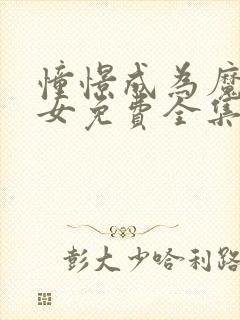 憧憬成为魔
女免費全集
彭大少哈利路